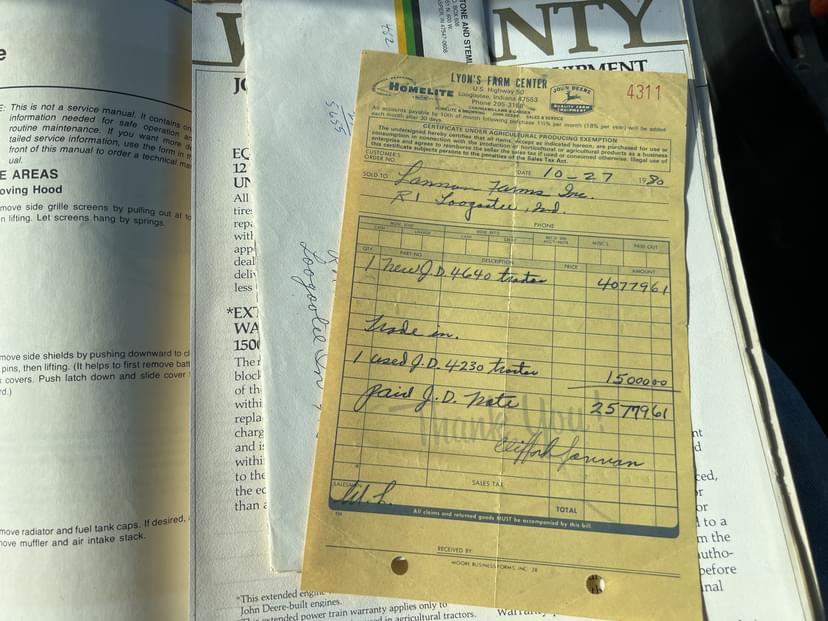 E: This is not a service manual. It contains
information needed for safe operation
routine maintenance. If you want more
tailed service information, use the form in
front of this manual to order a technical
ual.
E AREAS
oving Hood
move side grille screens by pulling out at
n lifting. Let screens hang by springs.
move side shields by pushing downward to
pins, then lifting. (It helps to first remove
covers. Push latch down and slide cover
rd.)
move radiator and fuel tank caps. If desired,
move muffler and air intake stack.
NTY
IPMENT
TONE AND
5655
Loogootee In
EQ
12
UN
All
tires
repa
with
appl
deal
deliv
less
*EX
WA
150
The
block
of th
withi
repla
charg
and i
withi
to the
the
than a
*This extended
John Deere-built engines.
extended power train warranty applies only to
in agricultural tractors.
HOMELITE
LYON'S FARM CENTER
U.S. Highway 50
Loogootee, Indiana 47553
Phone 295-3160
JOHN DEERE
QUALITY FARM EQUIPMENT
SALES & SERVICE
4311
All accounts payable by 10th of month following purchase 1½% per month (18% per year) will be added
each month after 30 days.
CERTIFICATE UNDER AGRICULTURAL PRODUCING EXEMPTION
The undersigned hereby certifies that all items, except as indicated hereon, are purchased for use or
consumption in connection with the production of horticultural or agricultural products as a business
enterprise and agrees to reimburse the seller the sales tax if used or consumed otherwise. Illegal use of
this certificate subjects persons to the penalties of the Sales Tax Act.
CUSTOMER'S
ORDER NO.
DATE 10-27 1980
SOLD TO Lannan Farms Inc.
R1 Loogootee, Ind.
PHONE
MISC'L PAID OUT
QTY. PART NO. DESCRIPTION PRICE AMOUNT
1 new J.D. 4640 tractor 40779 61
Trade in.
1 used J.D. 4230 tractor 15000 00
paid J.D. Note 25779 61
Thank You!
Clifford
SALESMAN
W.L.
SALES TAX
TOTAL
All claims and returned goods MUST be accompanied by this bill.
RECEIVED BY
MOORE BUSINESS FORMS, INC.